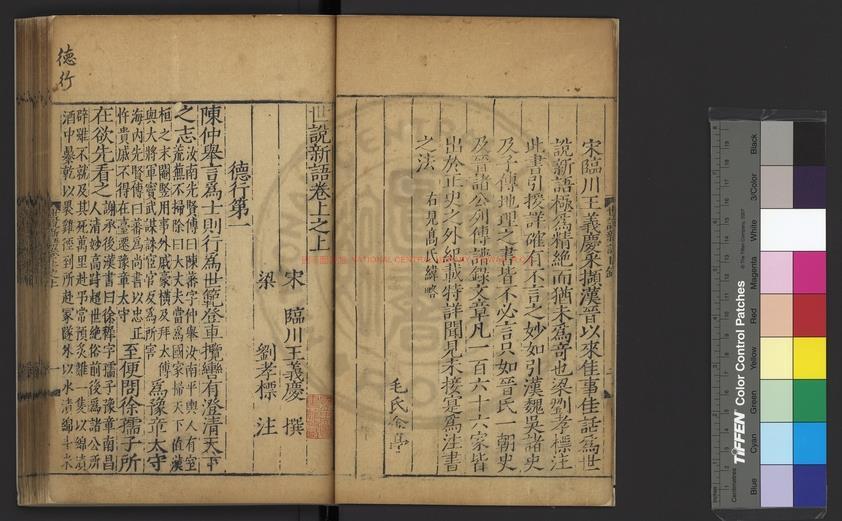 宋臨川王義慶采擷漢晉以來佳事佳話爲世
說新語極爲精絕而猶未爲奇也梁劉孝標注
此書引援詳確有不言之妙如引漢魏吳諸史
及子傳地理之書皆不必言只如晉氏一朝史
及晉諸公列傳譜錄文章凡一百六十六家皆
出於正史之外紀載特詳聞見未接是爲注書
之法
右見高氏緯略
世說新語卷上之上
宋 臨川王義慶 撰
梁 劉孝標 注
德行第一
陳仲舉言爲士則行爲世範登車攬轡有澄清天下
之志
汝南先賢傳曰陳蕃字仲舉汝南平輿人有室
荒蕪不掃除曰大丈夫當爲國家掃天下值漢
桓之末閹豎用事外戚豪橫及拜太傅
與大將軍竇武謀誅宦官反爲所害
爲豫章太守
海內先賢傳曰蕃爲尚書以忠正
忤貴戚不得在臺遷豫章太守
至便問徐孺子所
在欲先看之
謝承後漢書曰徐穉字孺子豫章南昌
人清妙高跱超世絕俗前後爲諸公所
辟雖不就及其死萬里赴弔常預炙雞一隻以綿漬
酒中暴乾以裹雞徑到所赴冢隧外以水漬綿斗米
德行
NATIONAL CENTRAL LIBRARY
TIFFEN Color Control Patches
© The Tiffen Company, 2007
Centimetres
Blue
Cyan
Green
Yellow
Red
Magenta
White
3/Color
Black